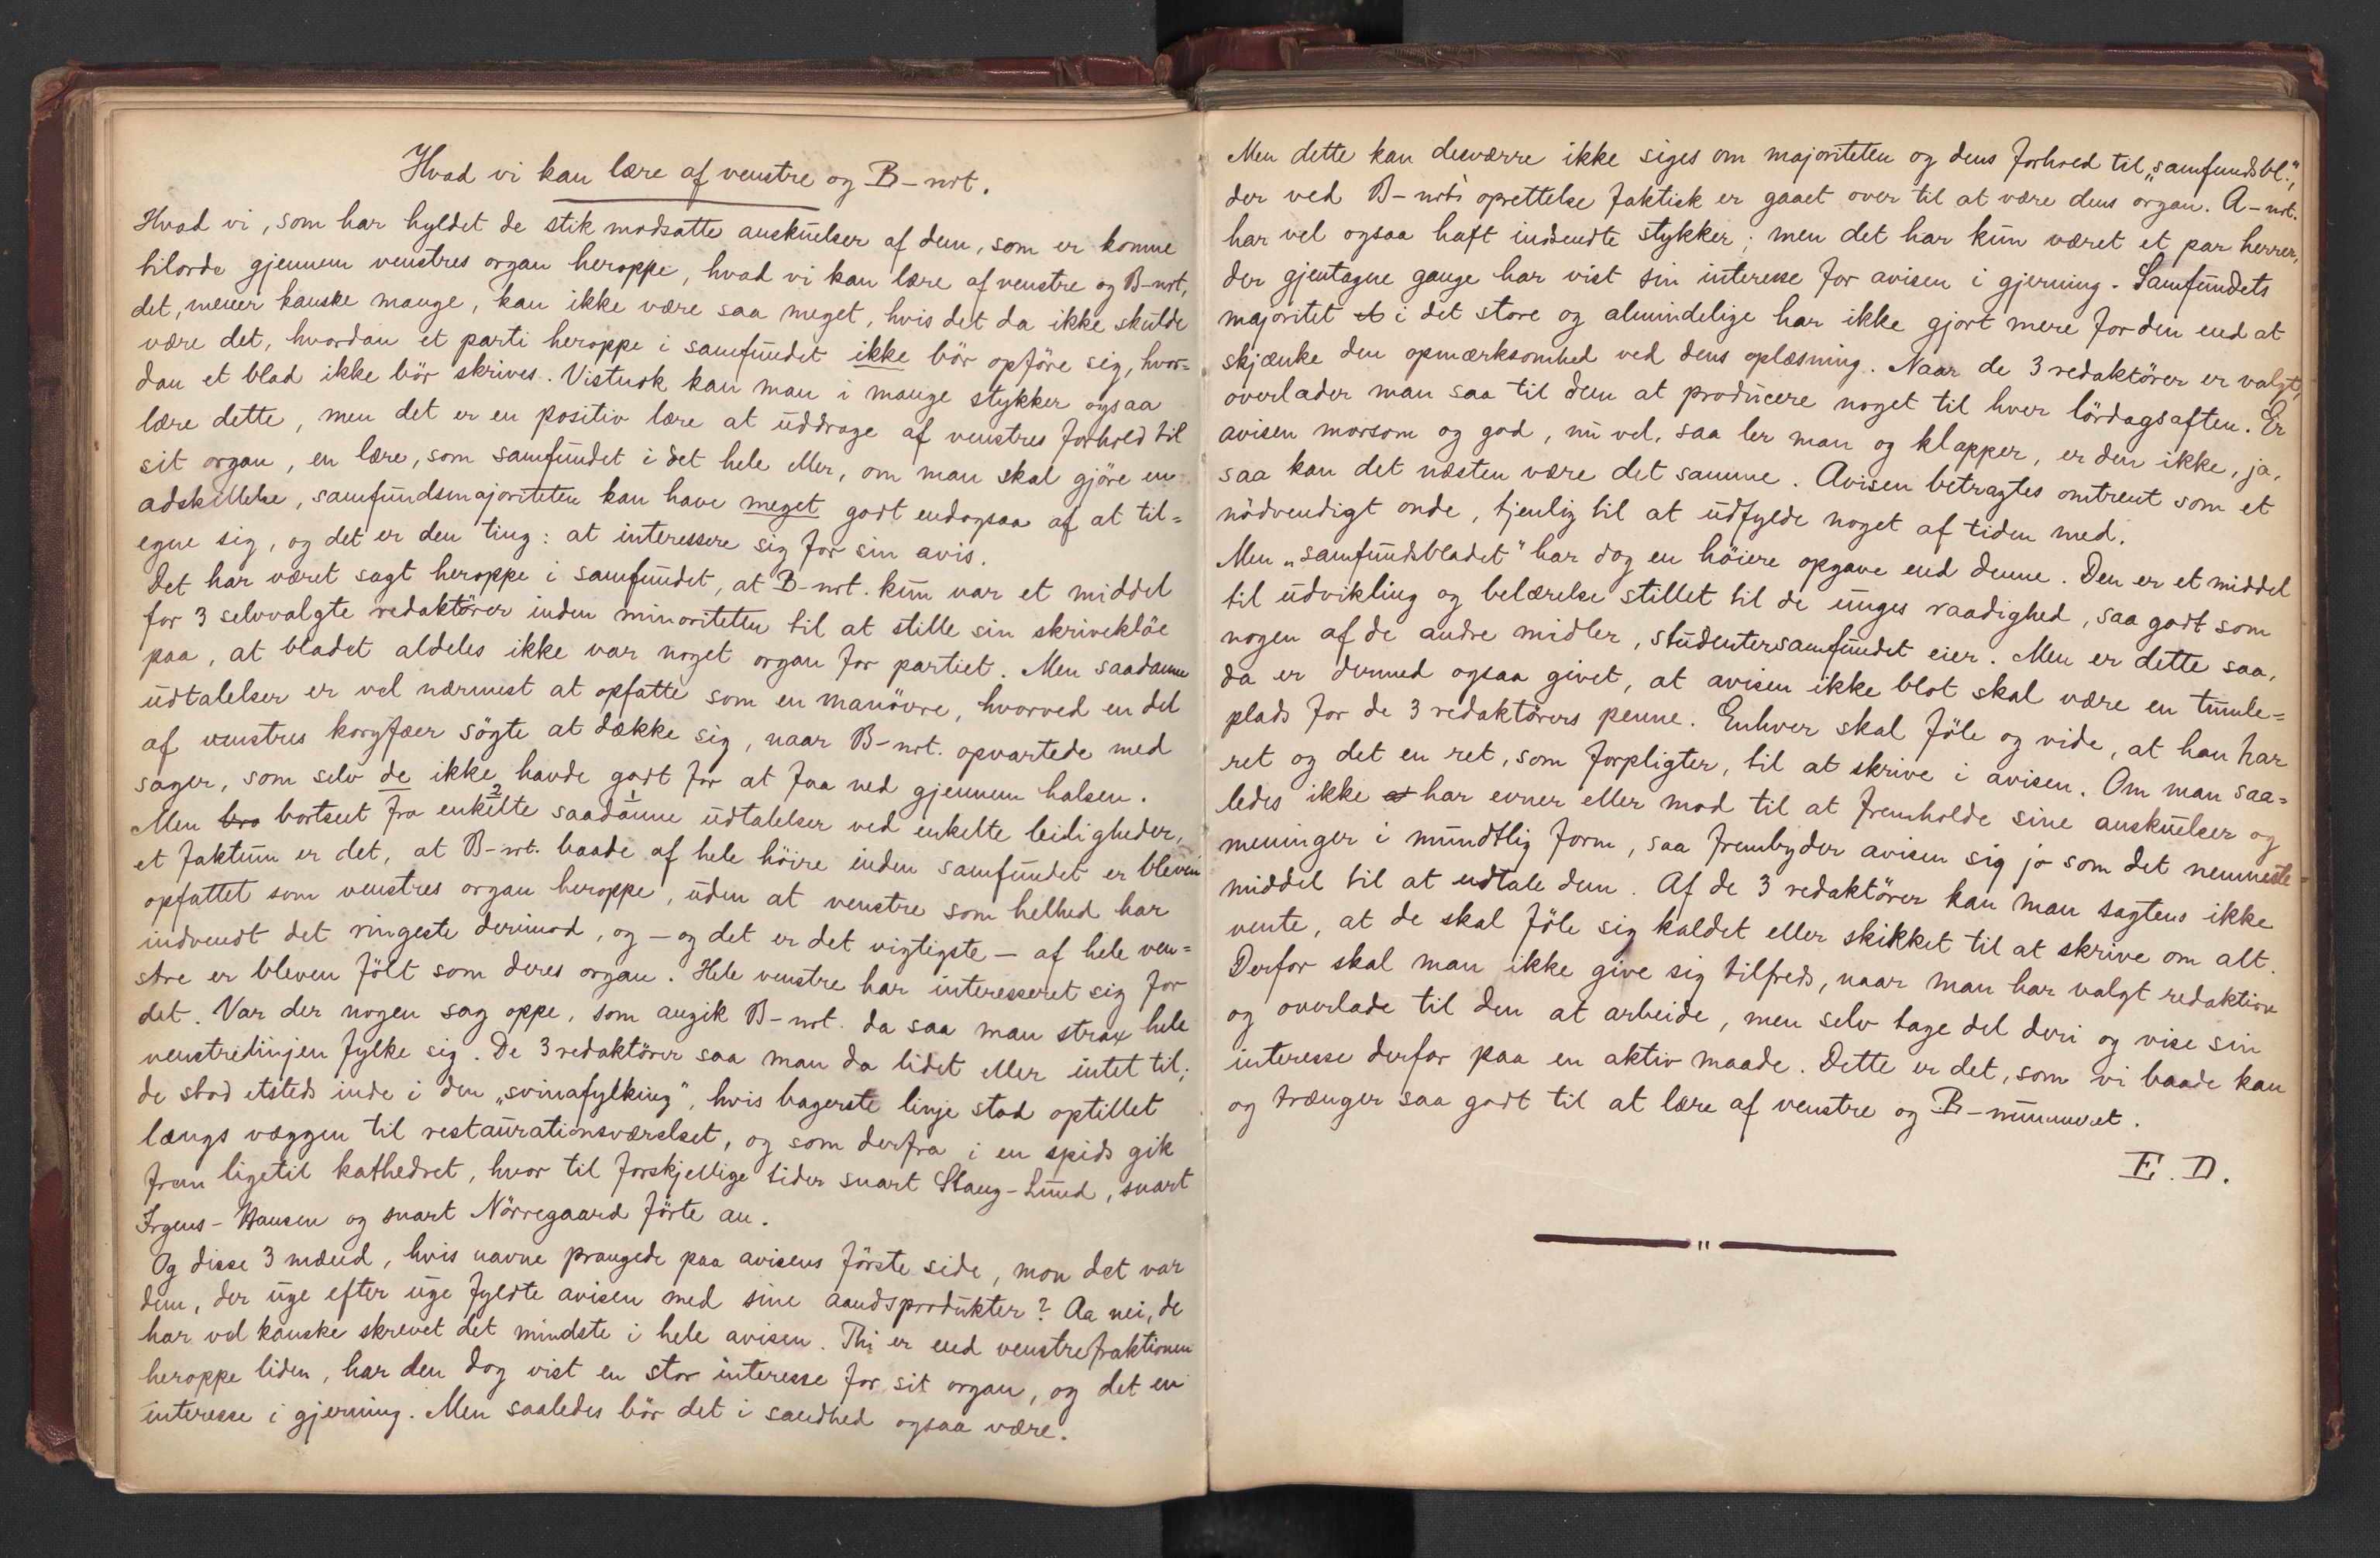 Hvad vi kan lære af venstre og B-nrt.
Hvad vi, som har hyldet de stik modsatte anskuelser af dem, som er komne
tilorde gjennem venstres organ heroppe, hvad vi kan lære af venstre og B-nrt,
det, mener kanske mange, kan ikke være saa meget, hvis det da ikke skulde
være det, hvordan et parti heroppe i samfundet ikke bör opföre sig, hvor=
dan et blad ikke bör skrives. Vistnok kan man i mange stykker ogsaa
lære dette, men det er en positiv lære at uddrage af venstres forhold til
sit organ, en lære, som samfundet i det hele eller, om man skal gjöre en
adskillelse, samfundsmajoriteten kan have meget godt endogsaa af at til=
egne sig, og det er den ting: at interessere sig for sin avis.
Det har været sagt heroppe i samfundet, at B-nrt. kun var et middel
for 3 selvvalgte redaktörer inden minoriteten til at stille sin skriveklöe
paa, at bladet aldeles ikke var noget organ for partiet. Men saadanne
udtalelser er vel nærmest at opfatte som en manövre, hvorved en del
af venstres koryfæer sögte at dække sig, naar B-nrt. opvartede med
sager, som selv de ikke havde godt for at faa ned gjennem halsen.
Men bro bortseet fra enkelte saadanne udtalelser ved enkelte leiligheder,
et faktum er det, at B-nrt. baade af hele höire inden samfundet er bleven
opfattet som venstres organ heroppe, uden at venstre som helhed har
indvendt det ringeste derimod, og – og det er det vigtigste – af hele ven=
stre er bleven fölt som deres organ. Hele venstre har interesseret sig for
det. Var der nogen sag oppe, som angik B-nrt. da saa man strax hele
venstrelinjen fylke sig. De 3 redaktörer saa man da lidet eller intet til;
de stod etsteds inde i den „svinafylking", hvis bagerste linje stod optillet
længs væggen til restaurationsværelset, og som derfra i en spids gik
frem ligetil kathedret, hvor til forskjellige tider snart Stang-Lund, snart
Irgens-Hansen og snart Nörregaard förte an.
Og disse 3 mænd, hvis navne prangede paa avisens förste side, mon det var
dem, der uge efter uge fyldte avisen med sine aandsprodukter? Aa nei, de
har vel kanske skrevet det mindste i hele avisen. Thi er end venstrefraktionen
heroppe liden, har den dog vist en stor interesse for sit organ, og det en
interesse i gjerning. Men saaledes bör det i sandhed ogsaa være.
Men dette kan desværre ikke siges om majoriteten og dens forhold til „samfundsbl.",
der ved B-nrts oprettelse faktisk er gaaet over til at være dens organ. A-nrt.
har vel ogsaa haft indsendte stykker; men det har kun været et par herrer,
der gjentagne gange har vist sin interesse for avisen i gjerning. Samfundets
majoritet i det store og almindelige har ikke gjort mere for den end at
skjænke den opmærksomhed ved dens oplæsning. Naar de 3 redaktörer er valgt,
overlader man saa til dem at producere noget til hver lördagsaften. Er
avisen morsom og god, nu vel, saa ler man og klapper, er den ikke, ja,
saa kan det næsten være det samme. Avisen betragtes omtrent som et
nödvendigt onde, tjenlig til at udfylde noget af tiden med.
Men „samfundsbladet" har dog en höiere opgave end denne. Den er et middel
til udvikling og belærelse stillet til de unges raadighed, saa godt som
nogen af de andre midler, studentersamfundet eier. Men er dette saa,
da er dermed ogsaa givet, at avisen ikke blot skal være en tumle=
plads for de 3 redaktörers penne. Enhver skal föle og vide, at han har
ret og det en ret, som forpligter, til at skrive i avisen. Om man saa=
ledes ikke har evner eller mod til at fremholde sine anskuelser og
meninger i mundtlig form, saa frembyder avisen sig jo som det nemmeste
middel til at udtale dem. Af de 3 redaktörer kan man sagtens ikke
vente, at de skal föle sig kaldet eller skikket til at skrive om alt.
Derfor skal man ikke give sig tilfreds, naar man har valgt redaktion
og overlade til den at arbeide, men selv tage del deri og vise sin
interesse derfor paa en aktiv maade. Dette er det, som vi baade kan
og trænger saa godt til at lære af venstre og B-nummeret.
E. D.